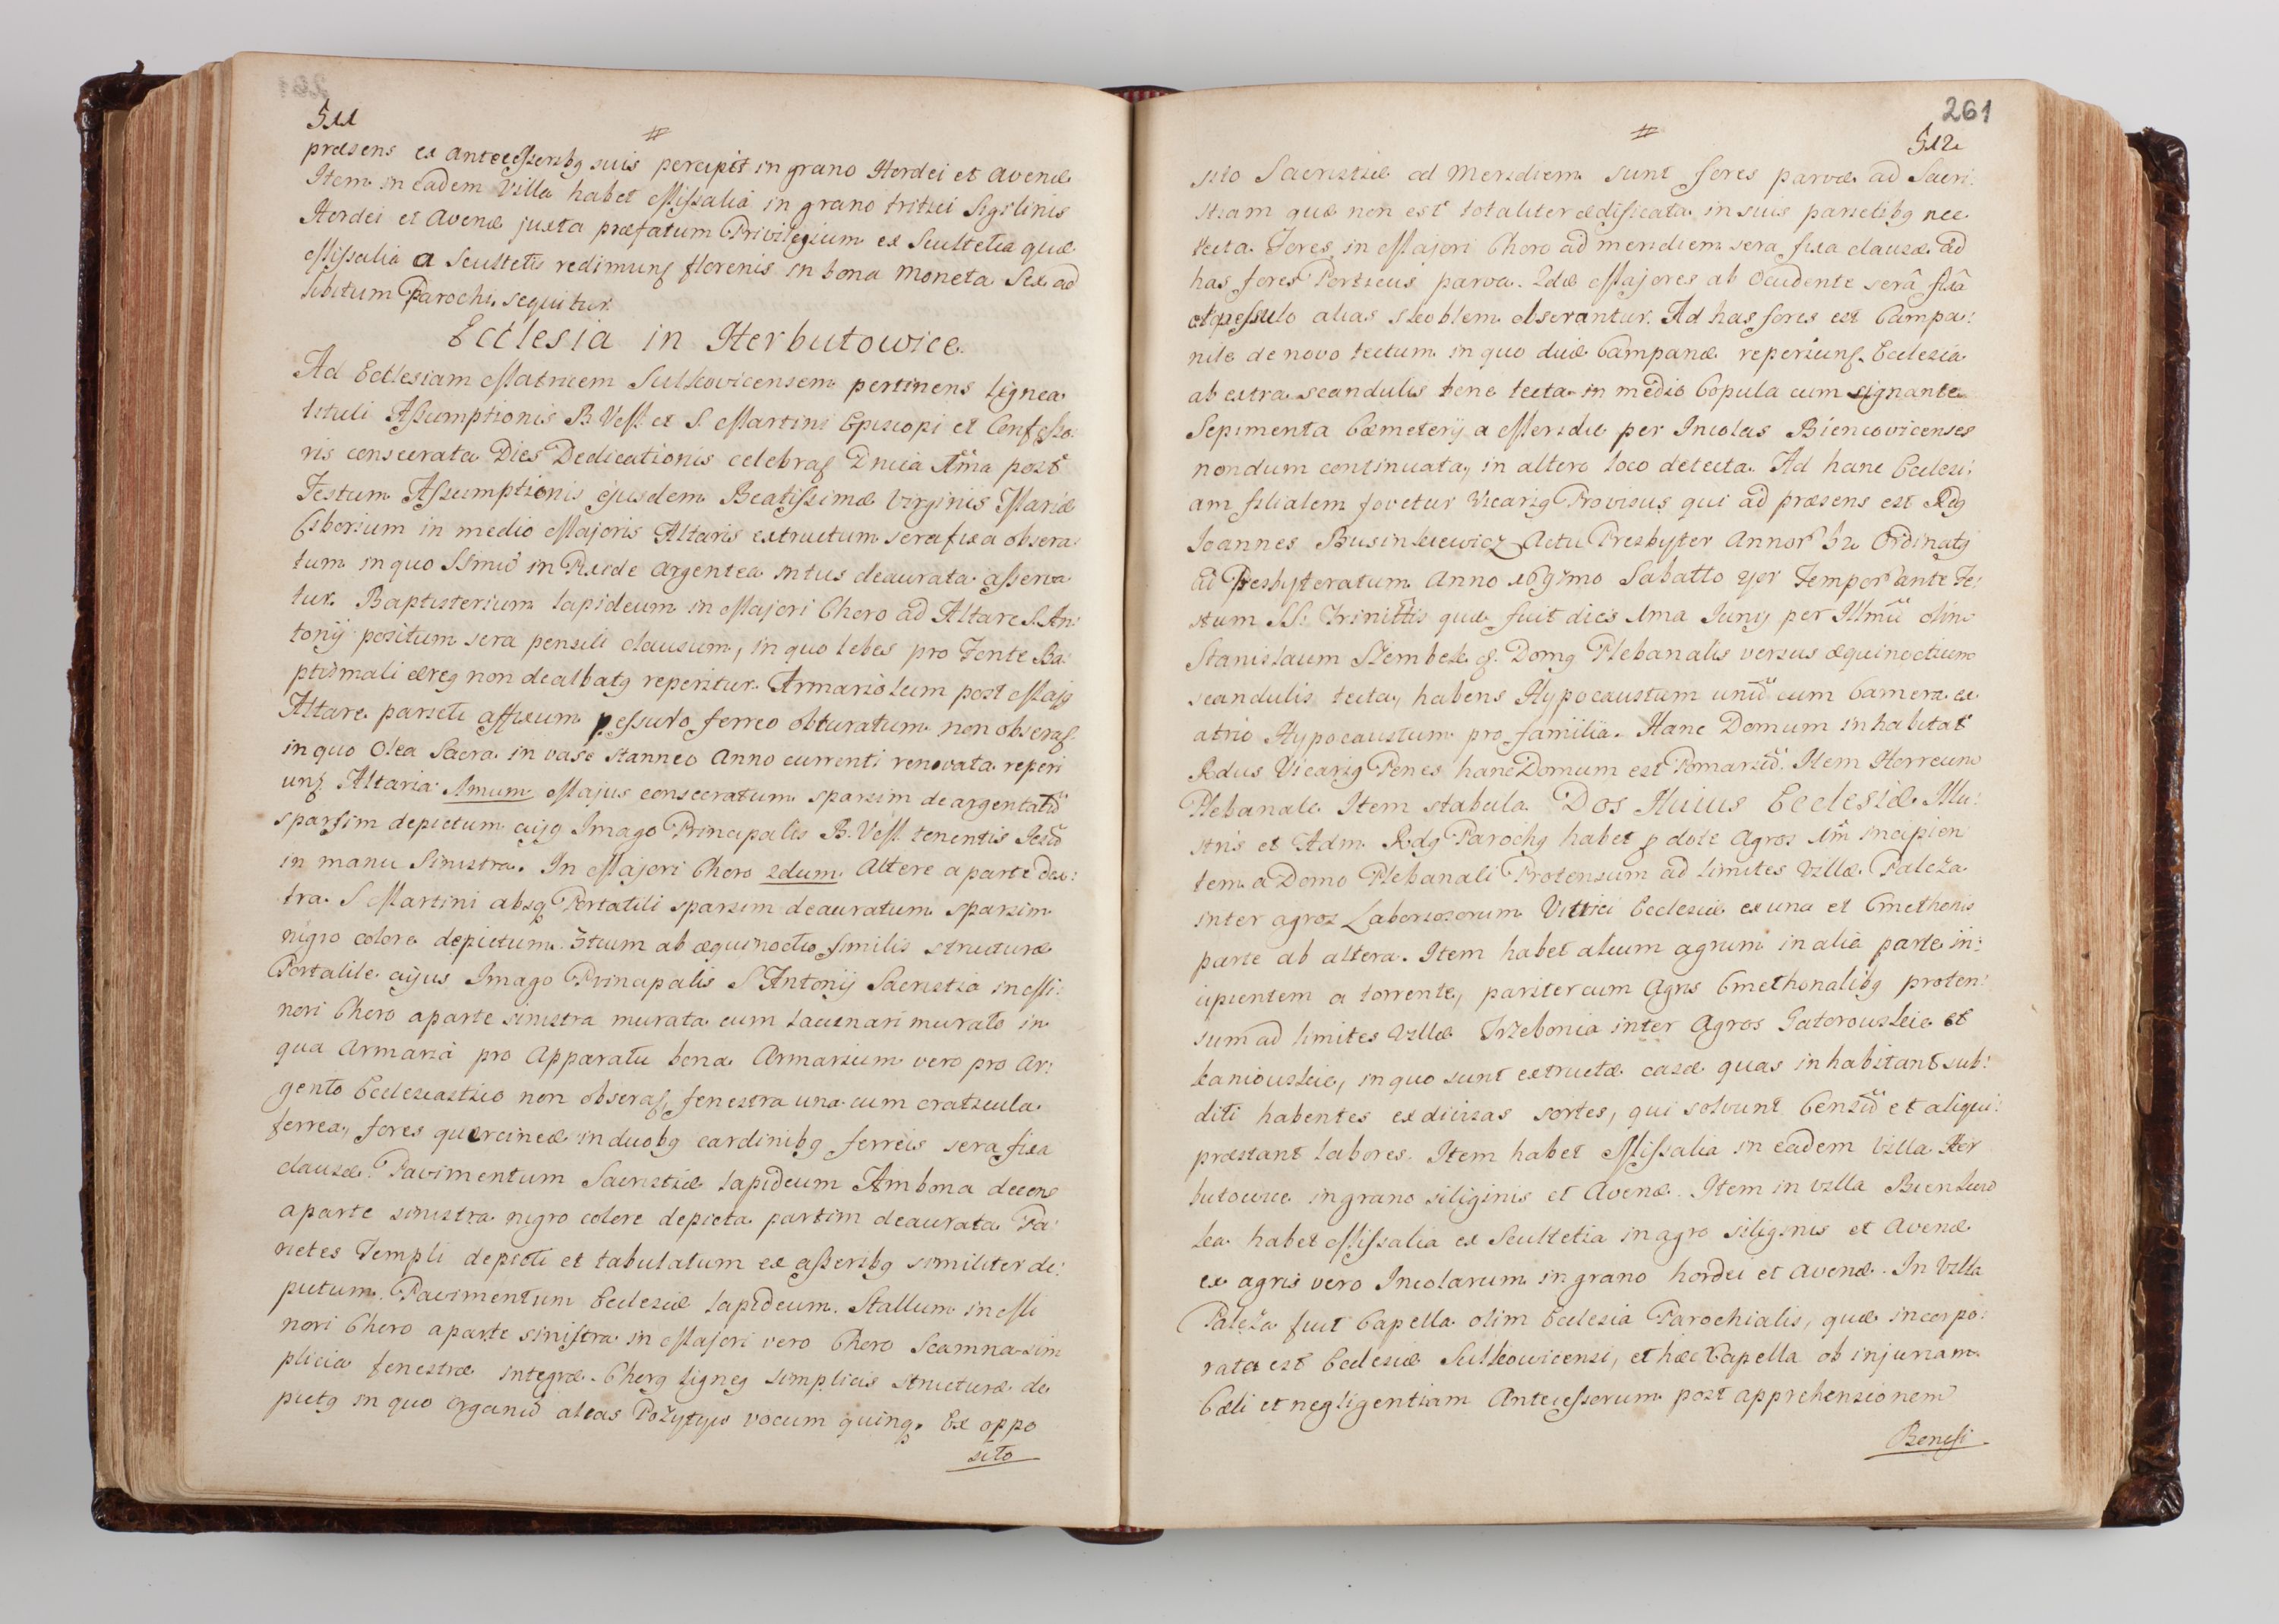 511
#
præsens ex Antecessoribq suis percipit in grano Hordei et Avenæ
Item in eadem Villa habet Missalia in grano tritici Sigilinis
Hordei et Avenæ juxta præfatum Privilegium ex Scultetia quæ
Missalia a Scultetis redimunt florenis in bona moneta Sex ad
libitum Parochi. sequitur.
Ecclesia in Herbutowice
Ad Ecclesiam Matricem Sulkovicensem pertinens lignea
tituli Assumptionis B. V. M. et S. Martini Episcopi et Confesso:
ris consecrata Dies Dedicationis celebrat Dnica 1ma post
Festum Assumptionis ejusdem Beatissimæ Virginis Mariæ
Ciborium in medio Majoris Altaris extructum sera fixa obsera:
tum in quo SSmū in Pixide argentea intus deaurata asserva
tur. Baptisterium lapideum in Majori Choro ad Altare S. An:
tonij positum sera pensili clausum, in quo lebes pro Fonte Ba:
ptismali æreq non dealbatq reperitur. Armariolum post Majq
Altare parieti affixum pessulo ferreo obturatum non obserat
in quo Olea Sacra in vase stanneo Anno currenti renovata reperi
unt Altaria 1mum Majus consecratum sparsim deargentatū
sparsim depictum cujq Imago Principalis B. V. M. tenentis Jesū
in manu Sinistra. In Majori Choro 2dum Altere a parte dex:
tra S Martini absq Portatili sparsim deauratum sparsim
nigro colore depictum. 3tium ab æquinoctio similis structuræ
Portatile cujus Imago Principalis S Antonij Sacristia in Mi:
nori Choro a parte sinistra murata cum lacunari murato in
qua Armaria pro Apparatu bona Armarium vero pro Ar:
gento Ecclesiastico non obserat, fenestra una cum craticula
ferrea, fores quercineæ in duobq cardinibq ferreis sera fixa
clausæ. Pavimentum Sacristiæ lapideum Ambona decens
a parte sinistra nigro colore depicta partim deaurata Pa:
rietes Templi depicti et tabulatum ex asseribq similiter de:
pictum. Pavimentum Ecclesiæ lapideum. Stallum in Mi
nori Choro a parte sinistra in Majori vero Choro Scamna sim
plicia fenestræ integræ. Chorq ligneq simplicis structuræ de
pictq in quo organū alias Pozytyw vocum quinq. Ex oppo
sito
261
#
512
sito Sacristiæ ad Meridiem sunt fores parvæ ad Sacri:
stiam quæ non est totaliter ædificata in suis parietibq nec
tecta. Fores in Majori Choro ad meridiem sera fixa clausæ ad
has fores Porticus parva. 2dæ Majores ab Occidente serâ fixâ
et pessulo alias skoblem obserantur. Ad has fores est Campa:
nile de novo tectum in quo duæ Campanæ reperiunt. Ecclesia
ab extra scandulis bene tecta in medio Copula cum signante
Sepimenta Cæmeterij a Meridie per Incolas Biencovicenses
nondum continuata, in altero loco detecta. Ad hanc Ecclesi:
am filialem fovetur Vicariq Provisus qui ad præsens est Rdq
Joannes Businkiewicz Actu Presbyter Annor 52 Ordinatq
ad Presbyteratum Anno 1697mo Sabatto 4or Tempor ante Fe:
stum SS: Trinittis quæ fuit dies 1ma Junij per Illmū olim
Stanislaum Szembek &. Domq Plebanalis versus æquinoctium
scandulis tecta, habens Hypocaustum unū cum Camera ex
atrio Hypocaustum pro familia. Hanc Domum inhabitat
Rdus Vicariq Penes hanc Domum est Pomariū. Item Horreum
Plebanale Item stabula. Dos Huius Ecclesiæ. Illu:
stris et Adm. Rdq Parochq habet p dote Agros 1m incipien
tem a Domo Plebanali Protensum ad limites Villæ Paleza
inter agros Laboriosorum Vitrici Ecclesiæ ex una et Cmethonis
parte ab altera. Item habet alium agrum in alia parte in:
cipientem a torrente, pariter cum Agris Cmethonalibq proten:
sum ad limites Villæ Trzebonia inter Agros Gatorowskie et
kaniowskie, in quo sunt extructæ casæ quas inhabitant sub:
diti habentes ex divisas sortes, qui solvunt Censū et aliqui:
præstant labores. Item habet Missalia in eadem Villa Her
butowice in grano siliginis et Avenæ. Item in villa Bienkow
ka habet Missalia ex Scultetia in agro siliginis et Avenæ
ex agris vero Incolarum in grano hordei et Avenæ. In Villa
Paleza fuit Capella olim Ecclesia Parochialis, quæ incorpo:
rata est Ecclesiæ Sulkowicensi, et hæc Capella ob injuriam
Cæli et negligentiam Antecessorum post apprehensionem
Benefi